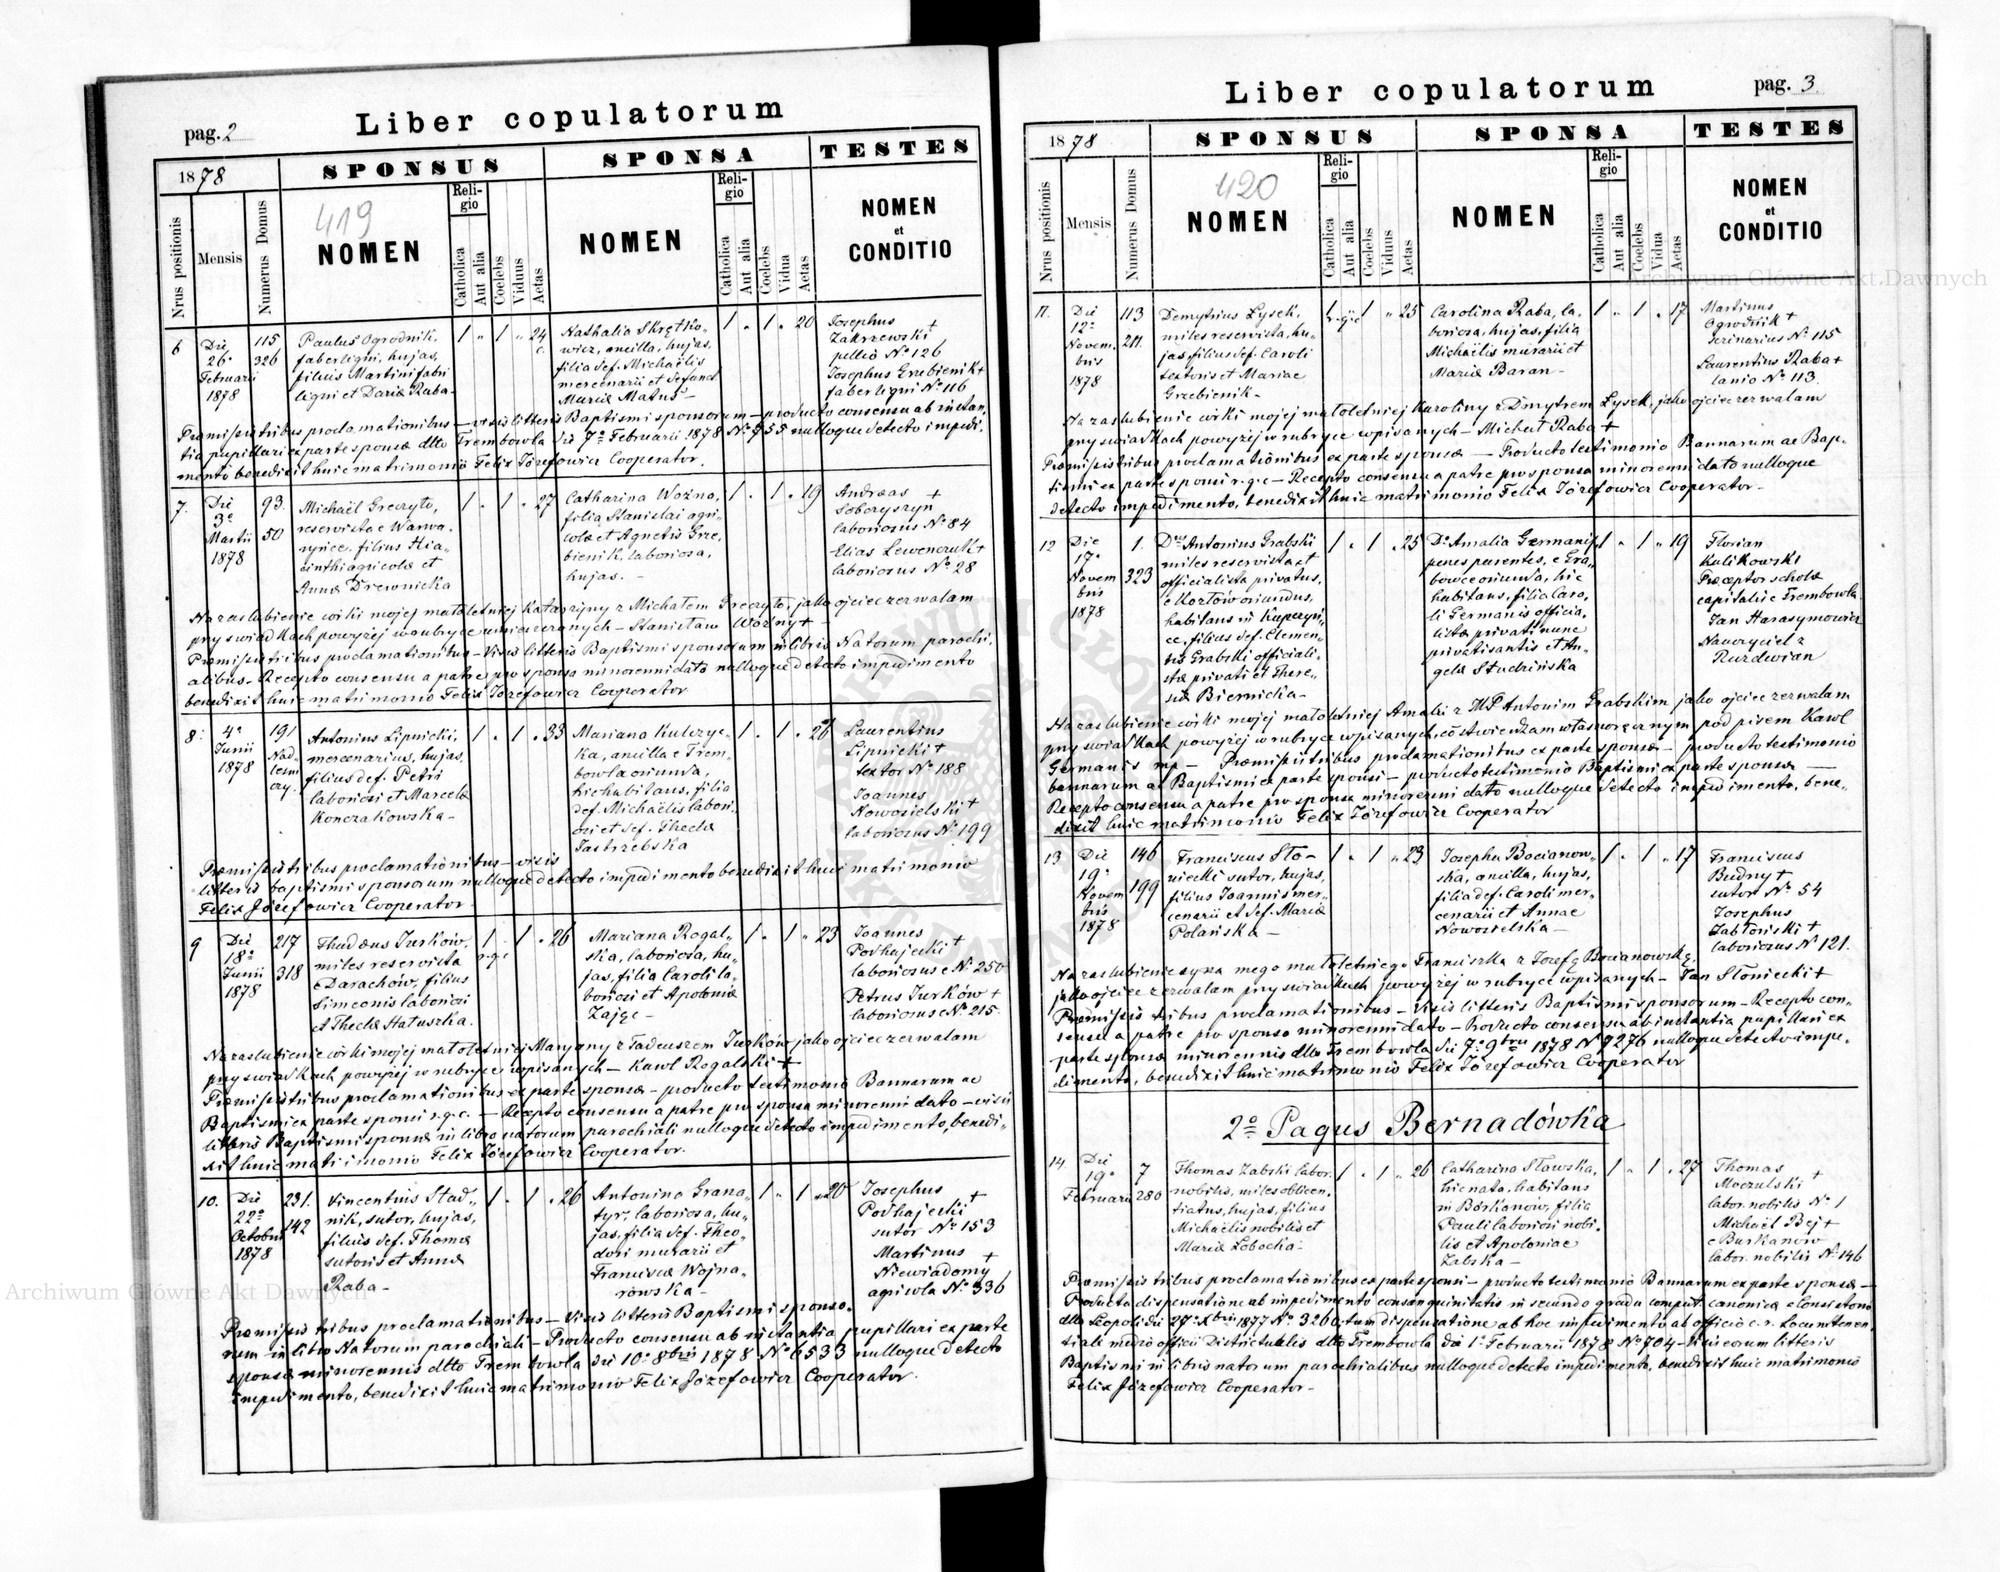 pag. 2
Liber copulatorum
1878
SPONSUS
SPONSA
TESTES
Nrus positionis
Mensis
Numerus Domus
419
NOMEN
Religio
Catholica
Aut alia
Coelebs
Viduus
Aetas
NOMEN
Religio
Catholica
Aut alia
Coelebs
Vidua
Aetas
NOMEN
et
CONDITIO
6
Die
26a
Februarii
1878
115
326
Paulus Ogrodnik,
faber ligni, hujas,
filius Martini fabri
ligni et Dariæ Raba-
1 " 1 " 24
Nathalia Skrętko-
wicz, ancilla, hujas,
filia def. Michaëlis
mercenarii et defunct.
Mariæ Matus-
1 . 1 . 20
Josephus +
Zakrzewski
pellio No 126
Josephus Grzebienik +
faber ligni No 116
Præmissis tribus proclamationibus - visis litteris Baptismi sponsorum - producto consensu ab instan-
tia pupillari ex parte sponsæ dtto Trembowla die 7a Februarii 1878 No 955 nulloque detecto impedi-
mento benedixit huic matrimonio Felix Józefowicz Cooperator.
7.
Die
3a
Martii
1878
93.
50
Michaël Greczyło,
reservista e Warwa-
ryńce, filius Hia-
cinthi agricolæ et
Annæ Drewnicka
1 . 1 . 27
Catharina Woźna,
filia Stanislai agri-
colæ et Agnetis Grze-
bienik, laboriosa,
hujas. -
1 . 1 . 19
Andreas +
Soberyszyn
laboriosus No 84
Elias Lewenczuk +
laboriosus No 28
Na zaslubienie córki mojej małoletniej Katarzyny z Michałem Greczyło, jako ojciec zezwalam
przy swiadkach powyżej w rubryce umieszczonych - Stanisław Woźny +
Præmissis tribus proclamationibus - Visis litteris Baptismi sponsorum in libris Natorum parochi-
alibus - Recepto consensu a patre pro sponsa minorenni dato nulloque detecto impedimento
benedixit huic matrimonio Felix Józefowicz Cooperator
8.
4a
Junii
1878
191
Antonius Lipnicki,
mercenarius, hujas,
filius def. Petri
laboriosi et Marcelæ
Konczakowska -
1 . 1 . 33
Mariana Kulczyc-
ka, ancilla e Trem-
bowla oriunda,
hic habitans, filia
def. Michaëlis labori-
osi et def. Theclæ
Jastrzebska
1 . 1 . 26
Laurentius
Lipnicki +
textor No 188
Joannes
Nowosielski +
laboriosus No 199
Præmissis tribus proclamationibus - visis
litteris baptismi sponsorum nulloque detecto impedimento benedixit huic matrimonio
Felix Józefowicz Cooperator
9
Die
18a
Junii
1878
217
318
Thadæus Jurków,
miles reservista
e Darachów, filius
Simeonis laboriosi
et Theclæ Hatuszka.
1 r.g.c. 1 . 26
Mariana Rogal-
ska, laboriosa, hu-
jas, filia Caroli la-
boriosi et Apoloniæ
Zając -
1 . 1 . 23
Joannes
Podhajecki +
laboriosus e No 250
Petrus Jurków +
laboriosus e No 215
Na zaslubienie córki mojej małoletniej Maryany z Tadeuszem Jurków jako ojciec zezwalam
przy swiadkach powyżej w rubryce wpisanych - Karol Rogalski +
Præmissis tribus proclamationibus ex parte sponsæ - producto testimonio Bannarum ac
Baptismi ex parte sponsi r.g.c. - Recepto consensu a patre pro sponsa minorenni dato - visis
litteris Baptismi sponsæ in libro natorum parochiali nulloque detecto impedimento, benedi-
xit huic matrimonio Felix Józefowicz Cooperator.
10.
Die
22a
Octobris
1878
231.
142
Vincentius Stad-
nik, sutor, hujas,
filius def. Thomæ
sutoris et Annæ
Raba -
1 . 1 . 26
Antonina Grana-
tyr, laboriosa, hu-
jas, filia def. Theo-
dori murarii et
Franciscæ Wojna-
rowska -
1 " 1 " 20
Josephus +
Podhajecki
sutor No 153
Martinus +
Niewiadomy
agricola No 336
Præmissis tribus proclamationibus - Visis litteris Baptismi sponso-
rum in libro Natorum parochiali - Producto consensu ab instantia pupillari ex parte
sponsæ minorennis dtto Trembowla die 10a 8bris 1878 No 6533 nulloque detecto
impedimento, benedixit huic matrimonio Felix Józefowicz Cooperator.
Liber copulatorum
pag. 3
1878
SPONSUS
SPONSA
TESTES
Nrus positionis
Mensis
Numerus Domus
420
NOMEN
Religio
Catholica
Aut alia
Coelebs
Viduus
Aetas
NOMEN
Religio
Catholica
Aut alia
Coelebs
Vidua
Aetas
NOMEN
et
CONDITIO
11.
Die
12a
Novem.
bris
1878
113
211.
Demytrius Łysek,
miles reservista, hu-
jas, filius def. Caroli
textoris et Mariae
Grzebienik -
1 r.g.c. 1 " 25
Carolina Raba, la-
boriosa, hujas, filia
Michaëlis murarii et
Mariæ Baran -
1 " 1 . 17
Martinus
Ogrodnik +
serinarius No 115
Laurentius Raba +
lanio No 113.
Na zaslubienie córki mojej małoletniej Karoliny z Dmytrem Łysek, jako ojciec zezwalam
przy swiadkach powyżej w rubryce wpisanych - Michał Raba +
Præmissis tribus proclamationibus ex parte sponsæ - Producto testimonio Bannarum ac Bap-
tismi ex parte sponsi r.g.c - Recepto consensu a patre pro sponsa minorenni dato nulloque
detecto impedimento, benedixit huic matrimonio Felix Józefowicz Cooperator -
12
Die
17a
Novem
bris
1878
1.
323
Dnus Antonius Grabski
miles reservista et
officialista privatus,
e Kozłów oriundus,
habitans in Kupczyń-
ce, filius def. Clemen-
tis Grabski officiali-
stæ privati et There-
siæ Biernicka -
1 . 1 . 25
Da Amalia Germanis,
penes parentes, e Gra-
bowce oriunda, hic
habitans, filia Caro-
li Germanis officia-
listæ privati nunc
privatisantis et An-
gelæ Studzińska
1 . 1 " 19
Florian
Kulikowski
Præceptor scholæ
capitalis e Trembowla
Jan Harasymowicz
Nauczyciel z
Ruzdwian
Na zaslubienie córki mojej małoletniej Amalii z WP Antonim Grabskim jako ojciec zezwalam
przy swiadkach powyżej w rubryce wpisanych, co stwierdzam własnoręcznym podpisem Karol
Germanis mp - Præmissis tribus proclamationibus ex parte sponsæ - producto testimonio
bannarum ac Baptismi ex parte sponsi - producto testimonio Baptismi ex parte sponsæ -
Recepto consensu a patre pro sponsa minorenni dato nulloque detecto impedimento, bene-
dixit huic matrimonio Felix Józefowicz Cooperator
13
Die
19a
Novem
bris
1878
146
199
Franciscus Sło-
niecki sutor, hujas,
filius Joannis mer-
cenarii et def. Mariæ
Polańska -
1 . 1 " 23
Josepha Bocianow-
ska, ancilla, hujas,
filia def. Caroli mer-
cenarii et Annae
Nowosielska -
1 . 1 " 17
Franciscus
Budny +
sutor No 54
Josephus
Jabłoński +
laboriosus No 121.
Na zaslubienie syna mego małoletniego Franciszka z Józefą Bocianowską,
jako ojciec zezwalam przy swiadkach powyżej w rubryce wpisanych - Jan Słoniecki +
Præmissis tribus proclamationibus - Visis litteris Baptismi sponsorum - Recepto con-
sensu a patre pro sponso minorenni dato - Producto consensu ab instantia pupillari ex
parte sponsæ minorennis dtto Trembowla die 7a 9bris 1878 No 7276 nulloque detecto impe-
dimento, benedixit huic matrimonio Felix Józefowicz Cooperator
2o Pagus Bernadówka
14.
Die
19a
Februarii
7
280
Thomas Zabski labor.
nobilis, miles oblicen-
tiatus, hujas, filius
Michaëlis nobilis et
Mariæ Łobocka -
1 . 1 " 26
Catharina Sławska,
hic nata, habitans
in Burkanow, filia
Pauli laboriosi nobi-
lis et Apoloniae
Zabska -
1 " 1 . 27
Thomas +
Moczulski
labor. nobilis No 1
Michaël Bej +
e Burkanów
labor. nobilis No 146
Præmissis tribus proclamationibus ex parte sponsi - producto testimonio Bannarum ex parte sponsæ -
Producta dispensatione ab impedimento consanguinitatis in secundo gradu comput. canonicæ e Consistorio
dtto Leopoli die 27a Xbris 1877 No 3260, tum dispensatione ab hoc impedimento ab officio c.r. Locumtenen-
tiali medio officii Districtualis dtto Trembowla die 1a Februarii 1878 No 704 - Visis eorum litteris
Baptismi in libris natorum parochialibus nulloque detecto impedimento, benedixit huic matrimonio
Felix Józefowicz Cooperator -
Archiwum Główne Akt Dawnych
Archiwum Główne Akt Dawnych